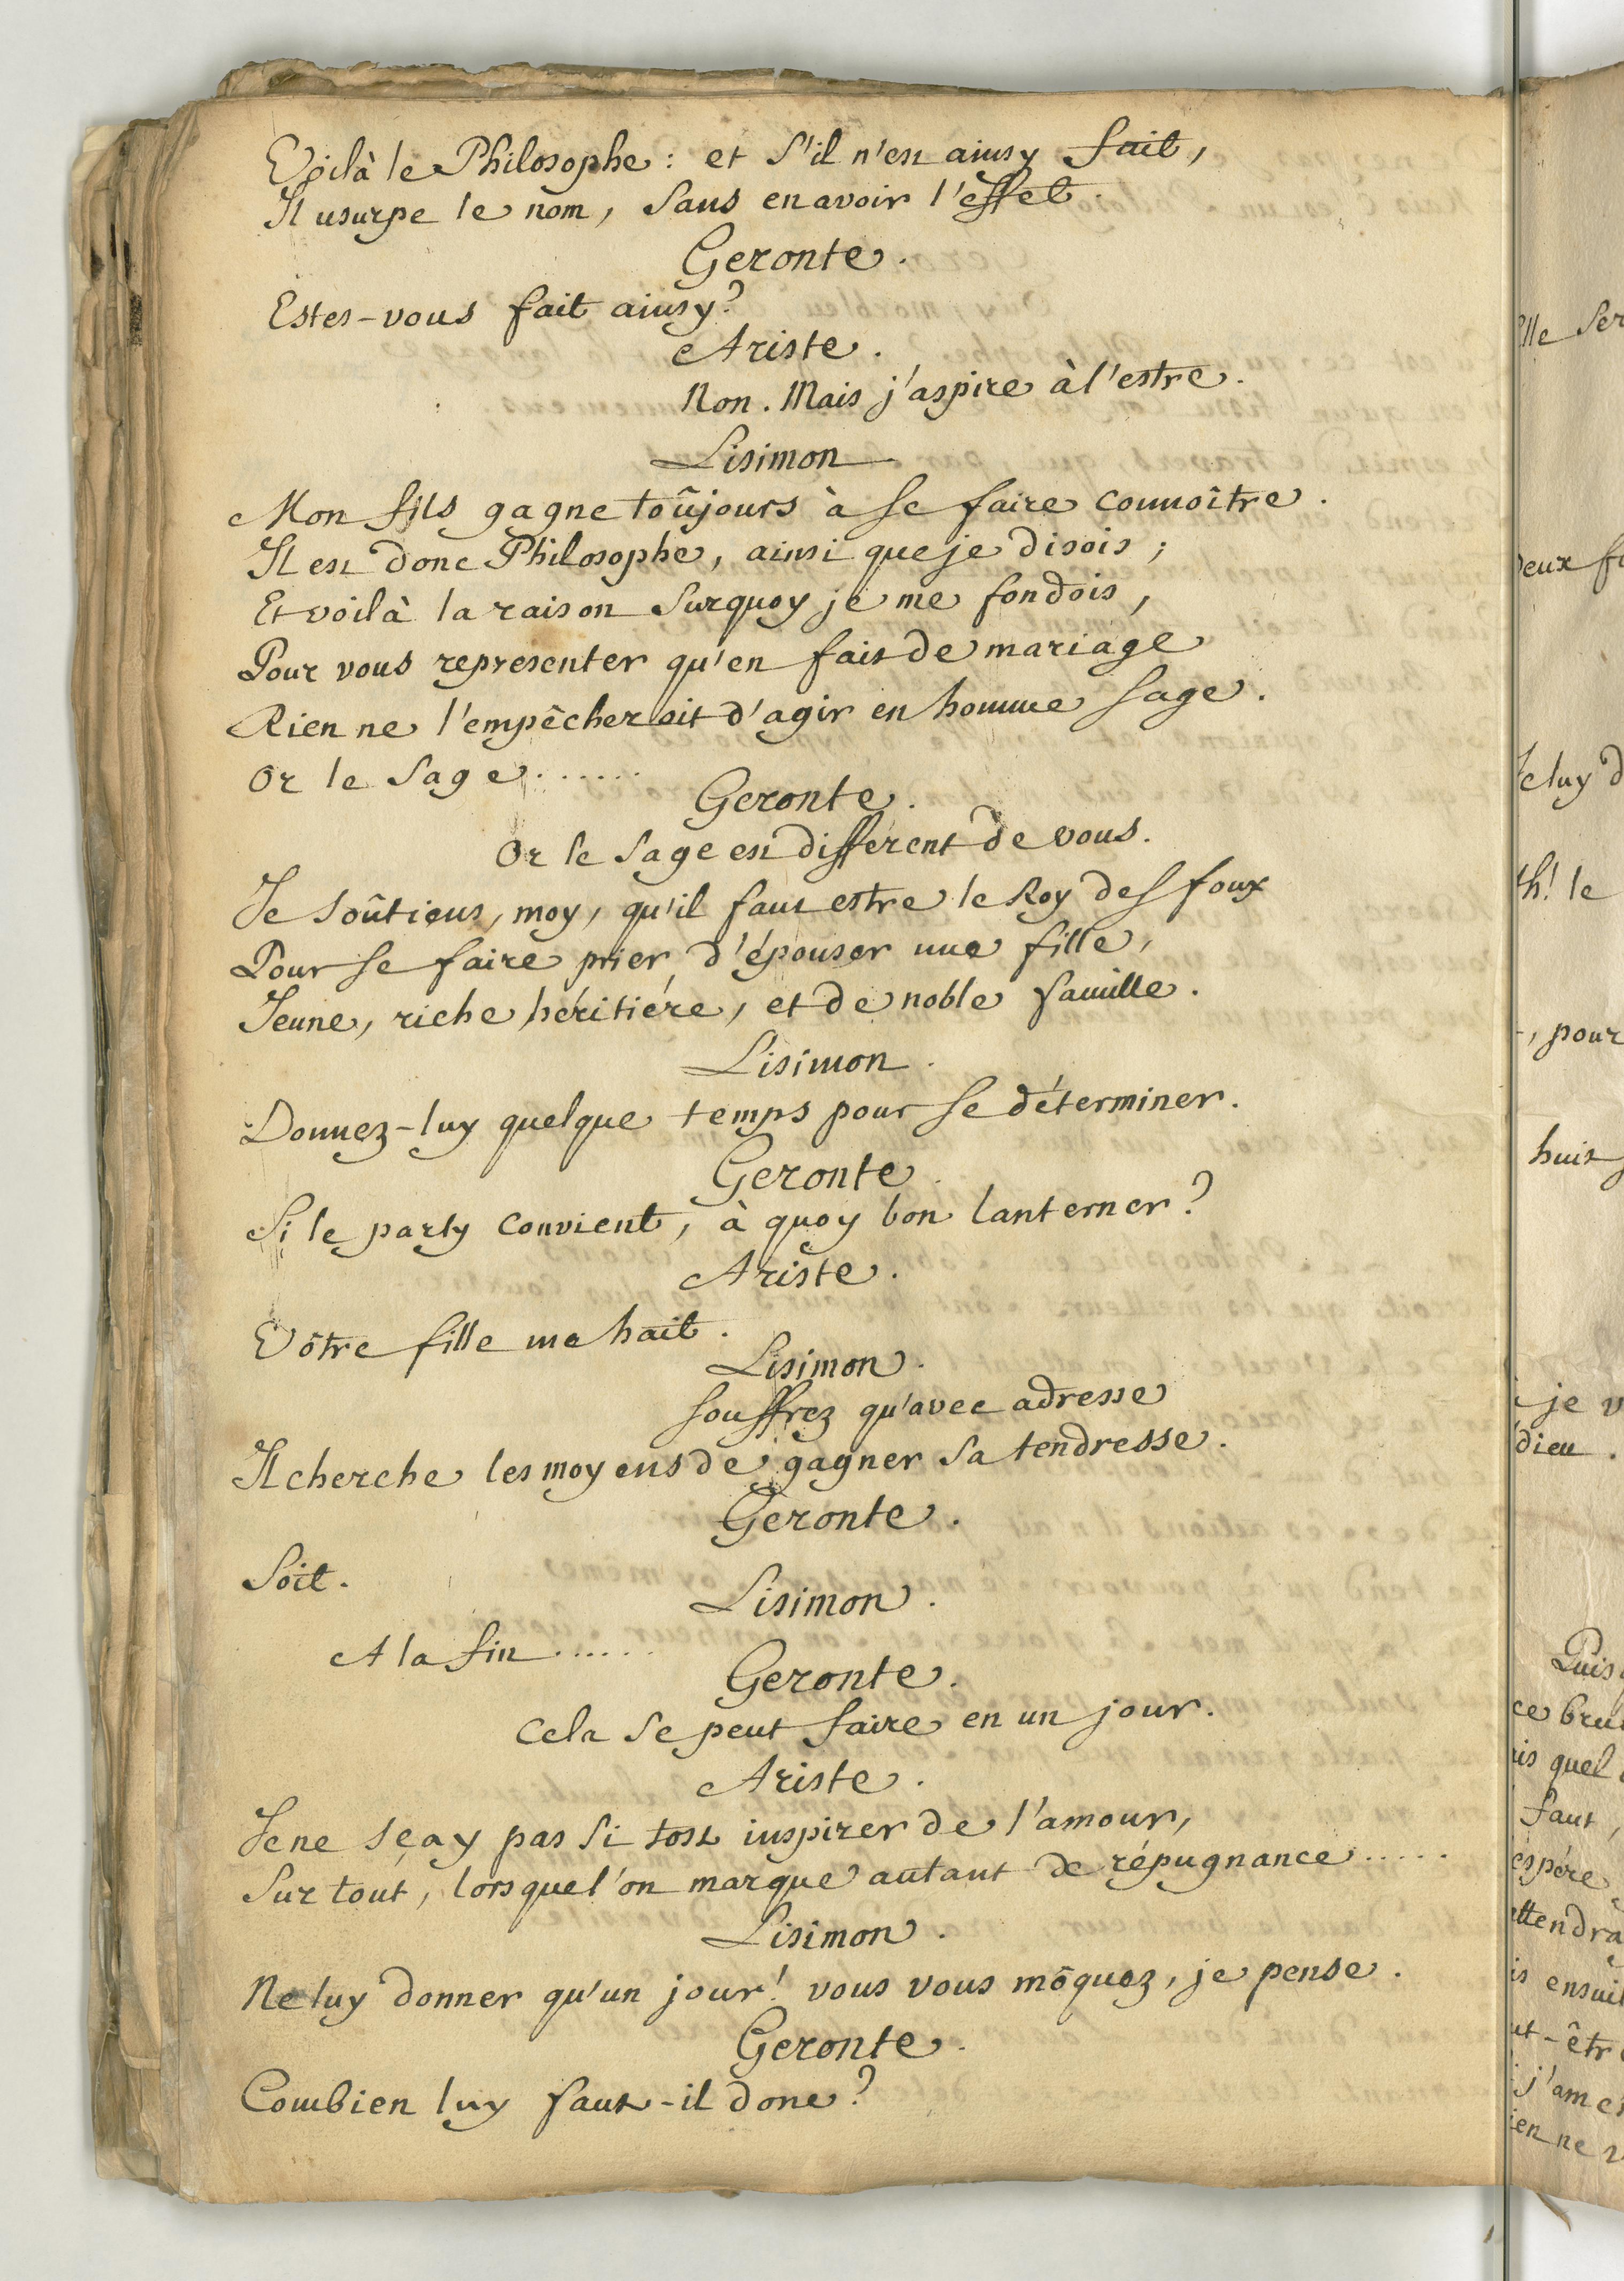 Voilà le Philosophe : et s'il n'est ainsy fait,
Il usurpe le nom, sans en avoir l'effet.
Geronte.
Estes-vous fait ainsy?
Ariste.
Non. Mais j'aspire à l'estre.
Lisimon
Mon fils gagne toûjours à se faire connoître.
Il est donc Philosophe, ainsi que je disois ;
Et voilà la raison surquoy je me fondois,
Pour vous representer qu'en fait de mariage
Rien ne l'empêcheroit d'agir en homme sage.
Or le sage......
Geronte.
Or le sage est différent de vous.
Je soûtiens, moy, qu'il faut estre le Roy des foux
Pour se faire prier d'épouser une fille,
Jeune, riche héritiére, et de noble famille.
Lisimon.
Donnez-luy quelque temps pour se déterminer.
Geronte.
Si le party convient, à quoy bon lanterner?
Ariste.
Vôtre fille me hait.
Lisimon.
Souffrez qu'avec adresse
Il cherche les moyens de gagner sa tendresse.
Geronte.
Soit.
Lisimon.
A la fin......
Geronte.
Cela se peut faire en un jour.
Ariste.
Je ne sçay pas si tost inspirer de l'amour,
Sur tout, lorsque l'on marque autant de répugnance.....
Lisimon.
Ne luy donner qu'un jour! vous vous môquez, je pense.
Geronte.
Combien luy faut-il donc?
Elle ser
Deux
Je luy d
Ah! le
, pour
huit
je v
dieu.
Puis
ce brui
is quel
faut,
espére
ttendra
is ensuit
ut-êtr
j'ame
ien ne